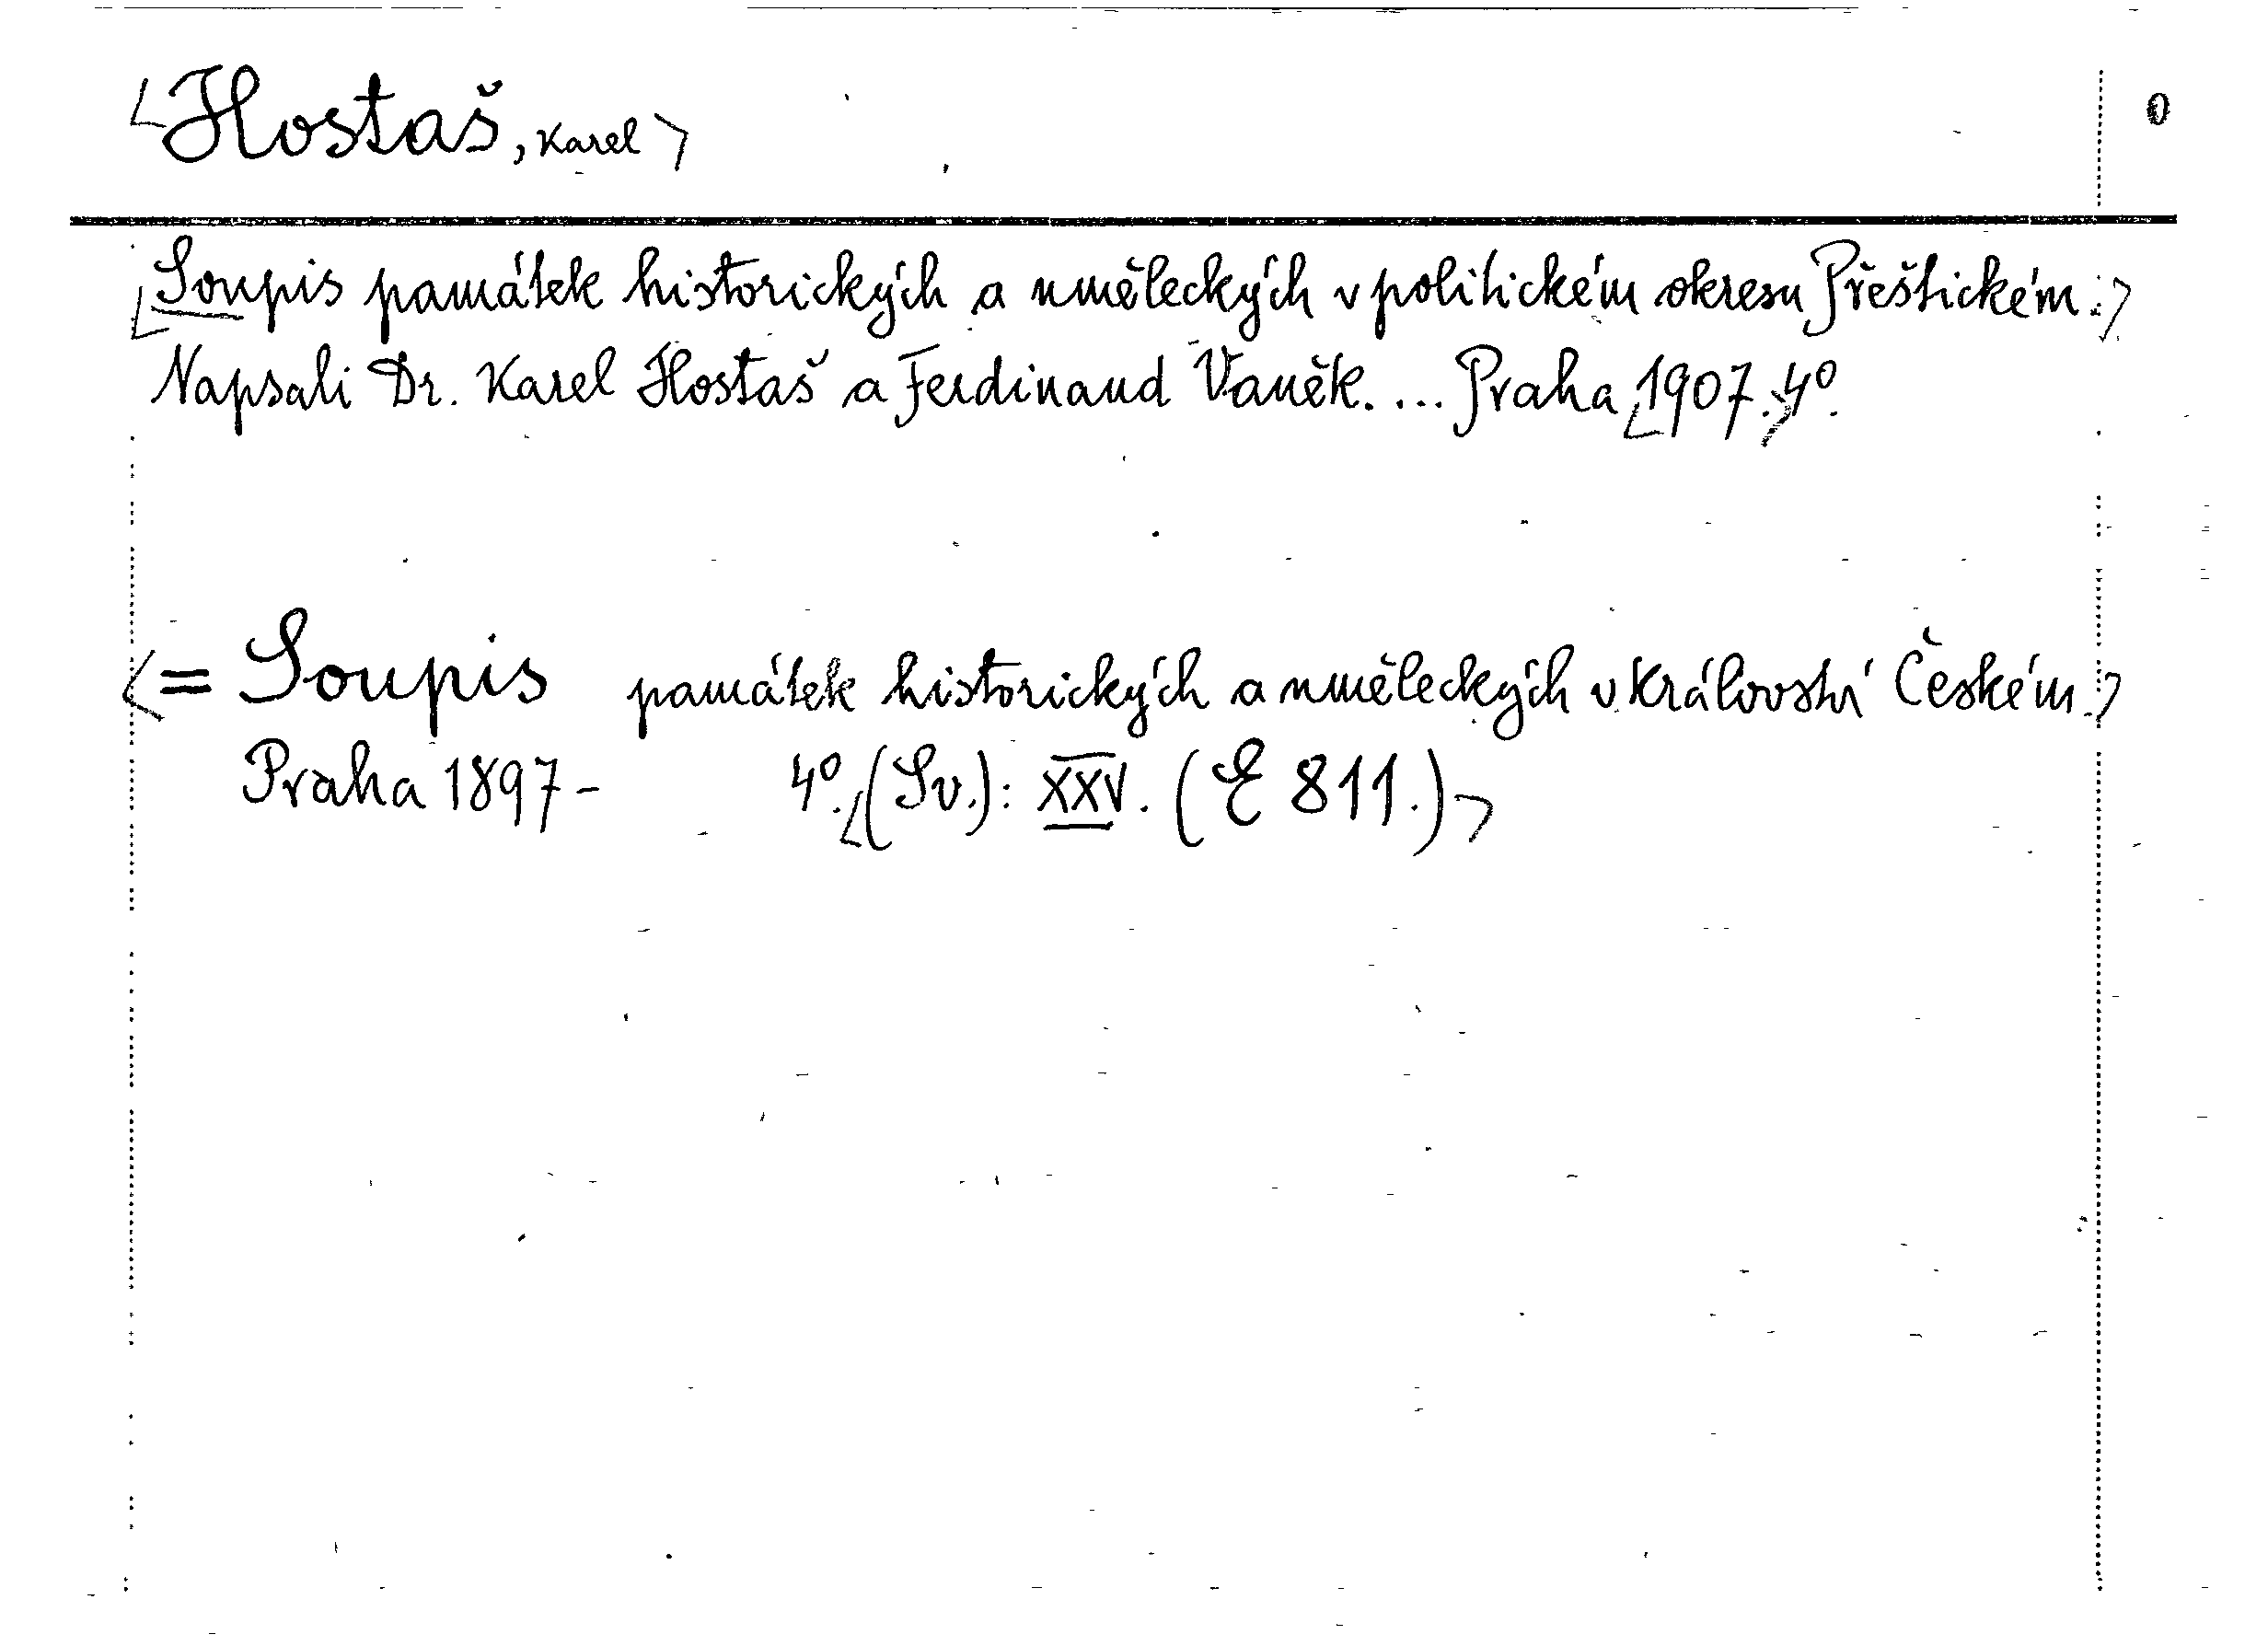 <Hostaš, Karel> 0
<Soupis památek historických a uměleckých v politickém okresu Přeštickém.>
Napsali Dr. Karel Hostaš a Ferdinand Vaněk. ... Praha <1907.> 4º.
<= Soupis památek historických a uměleckých v Království Českém.>
Praha 1897- 4º. <(Sv.): XXV. (E 811.)>